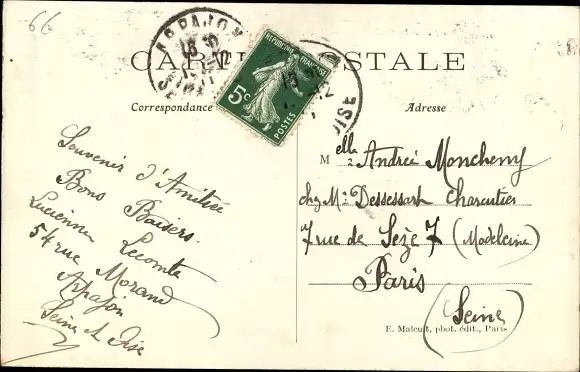 66
CARTE POSTALE
Correspondance
Adresse
ARPAJON
REPUBLIQUE FRANÇAISE
5c
POSTES
OISE
Souvenir d'Amitiée
Bons Baisers.
Lucienne Lecomte
54 rue Morand
Arpajon
Seine et Oise
Melle Andrée Moncheny
chez Mr Dessessart Charcutier
7 rue de Sèze 7 (Madeleine)
Paris
(Seine)
E. Malcuit, phot. édit., Paris